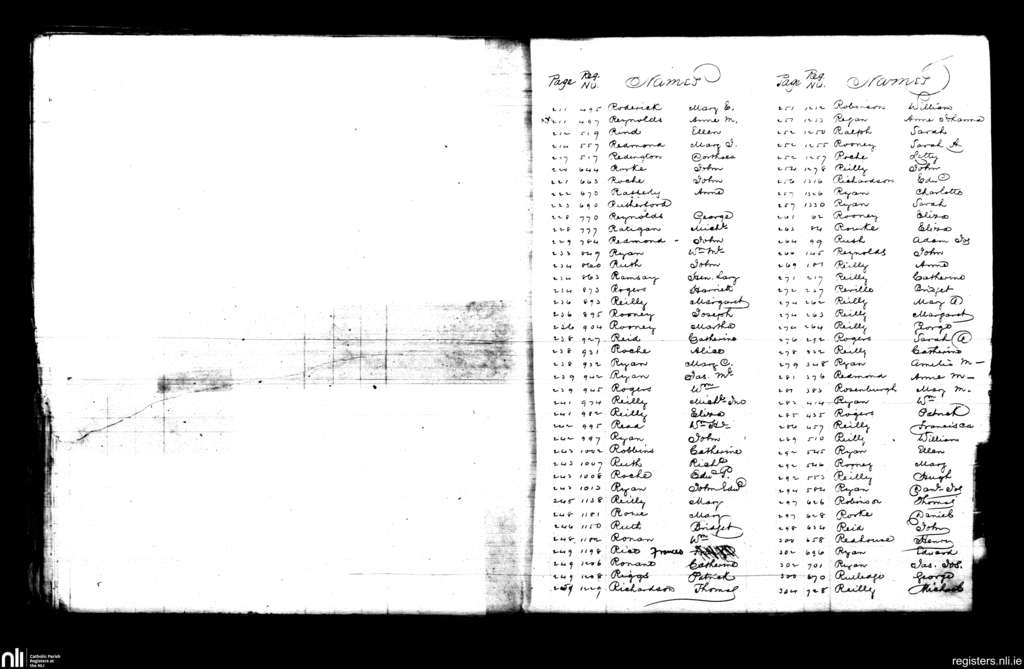 Page Reg. No. Names
211 495 Roderick Mary E.
211 497 Reynolds Anne M.
212 519 Rind Ellen
214 557 Redmond Mary J.
217 517 Redington Dorthsea
220 644 Rorke John
221 663 Roche John
222 670 Rafferty Anne
223 690 Rutherford
228 770 Reynolds George
228 777 Ratigan Michl
229 784 Redmond - John
233 849 Ryan Wm Mc
234 860 Ruth John
234 863 Ramsay Hen. Lacy
234 873 Rogers Harriet
236 893 Reilly Margaret
236 895 Rooney Joseph
236 904 Rooney Martha
238 927 Reid Catherine
238 931 Roche Alice
238 932 Ryan Mary C.
239 942 Ryan Jas. Mc
239 945 Rogers Wm
241 974 Reilly Michl Jno
241 982 Reilly Eliza
242 995 Read Wm Hy
242 997 Ryan John
243 1002 Robbins Catherine
243 1007 Ruth Richd
243 1008 Roche Edwd P.
243 1013 Ryan John Edwd
245 1138 Reilly Mary
248 1181 Rosie Mary
246 1150 Ruth Bridget
248 1182 Ronan Wm
249 1198 Rist Frances
249 1206 Ronan Catherine
249 1208 Riggs Patrick
259 1229 Richardson Thomas
Page Reg No. Names
251 1212 Robinson William
251 1213 Regan Anne Johanna
252 1250 Ralph Sarah
252 1255 Rooney Sarah A
252 1257 Roche Letty
254 1278 Reilly John
256 1316 Richardson Edwd
257 1326 Ryan Charlotte
257 1330 Ryan Sarah
261 62 Rooney Eliza
263 84 Rourke Eliza
264 99 Rush Adam Jos
266 145 Reynolds John
269 187 Reilly Anne
271 217 Reilly Catherine
272 227 Reville Bridget
274 262 Reilly Mary A
274 263 Reilly Margaret
274 264 Reilly
276 292 Rogers Sarah A
278 332 Reilly Catherine
279 348 Ryan Amelia M-
281 376 Redmond Anne M-
281 383 Rosenburgh Mary M.
283 414 Ryan Wm
285 435 Rogers Patrick
286 457 Reilly Francisca
289 510 Reilly William
292 545 Ryan Ellen
292 546 Rooney Mary
292 553 Reilly Hugh
294 584 Ryan Danl Jos
297 626 Robinson Thomas
297 628 Rorke Daniel
298 634 Reid John
300 658 Redhouse Henry
302 696 Ryan Edward
302 701 Ryan Jas. Jos.
300 670 Rutledge George
304 728 Reilly Michael
nli
Catholic Parish
Registers at
the NLI
registers.nli.ie